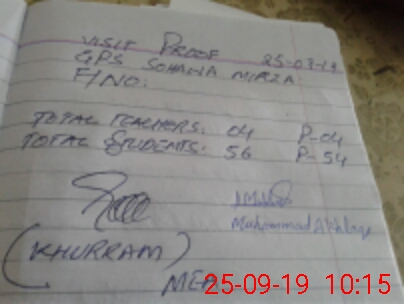 VISIT PROOF 25-09-19
GPS SOHAWA MIRZA
F/NO:
TOTAL TEACHERS: 04 P-04
TOTAL STUDENTS: 56 P-54
Muhammad Akhlaq
(KHURRAM)
MEA
25-09-19 10:15